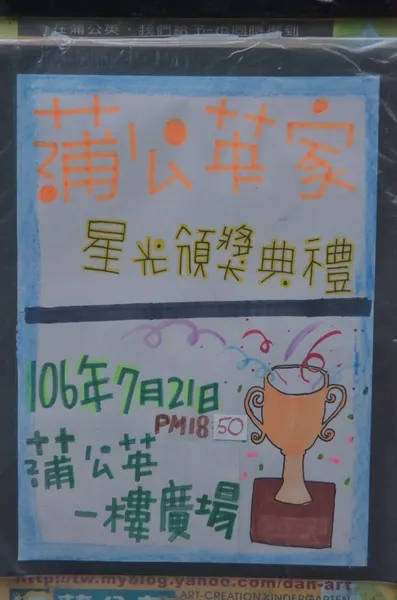 在蒲公英，我們給
蒲公英家
星光頒獎典禮
106年7月21日
PM18 50
蒲公英
一樓廣場
http://tw.myblog.yahoo.com/dan-art
ART-CREATION KINDERGARTEN